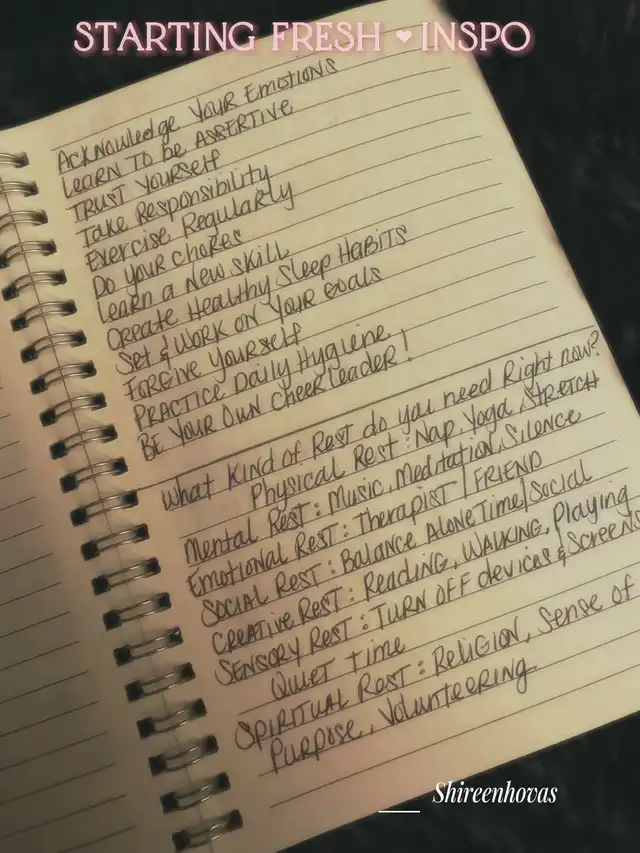 STARTING FRESH ❤ INSPO
Acknowledge Your Emotions
Learn To be ASSERTIVE
TRUST Yourself
Take Responsibility
Exercise Regularly
Do your chores
Learn a New Skill
Create Healthy Sleep Habits
Set & Work on Your Goals
Forgive Yourself
Practice Daily Hygiene
Be Your Own Cheerleader!
What Kind of Rest do you need Right now?
Physical Rest: Nap, Yoga, Stretch
Mental Rest: Music, Meditation, Silence
Emotional Rest: Therapist/Friend
Social Rest: Balance Alone Time/Social
Creative Rest: Reading, Walking, Playing
Sensory Rest: Turn OFF devices & Screens
Quiet Time
Spiritual Rest: Religion, Sense of
Purpose, Volunteering
Shireenhovas